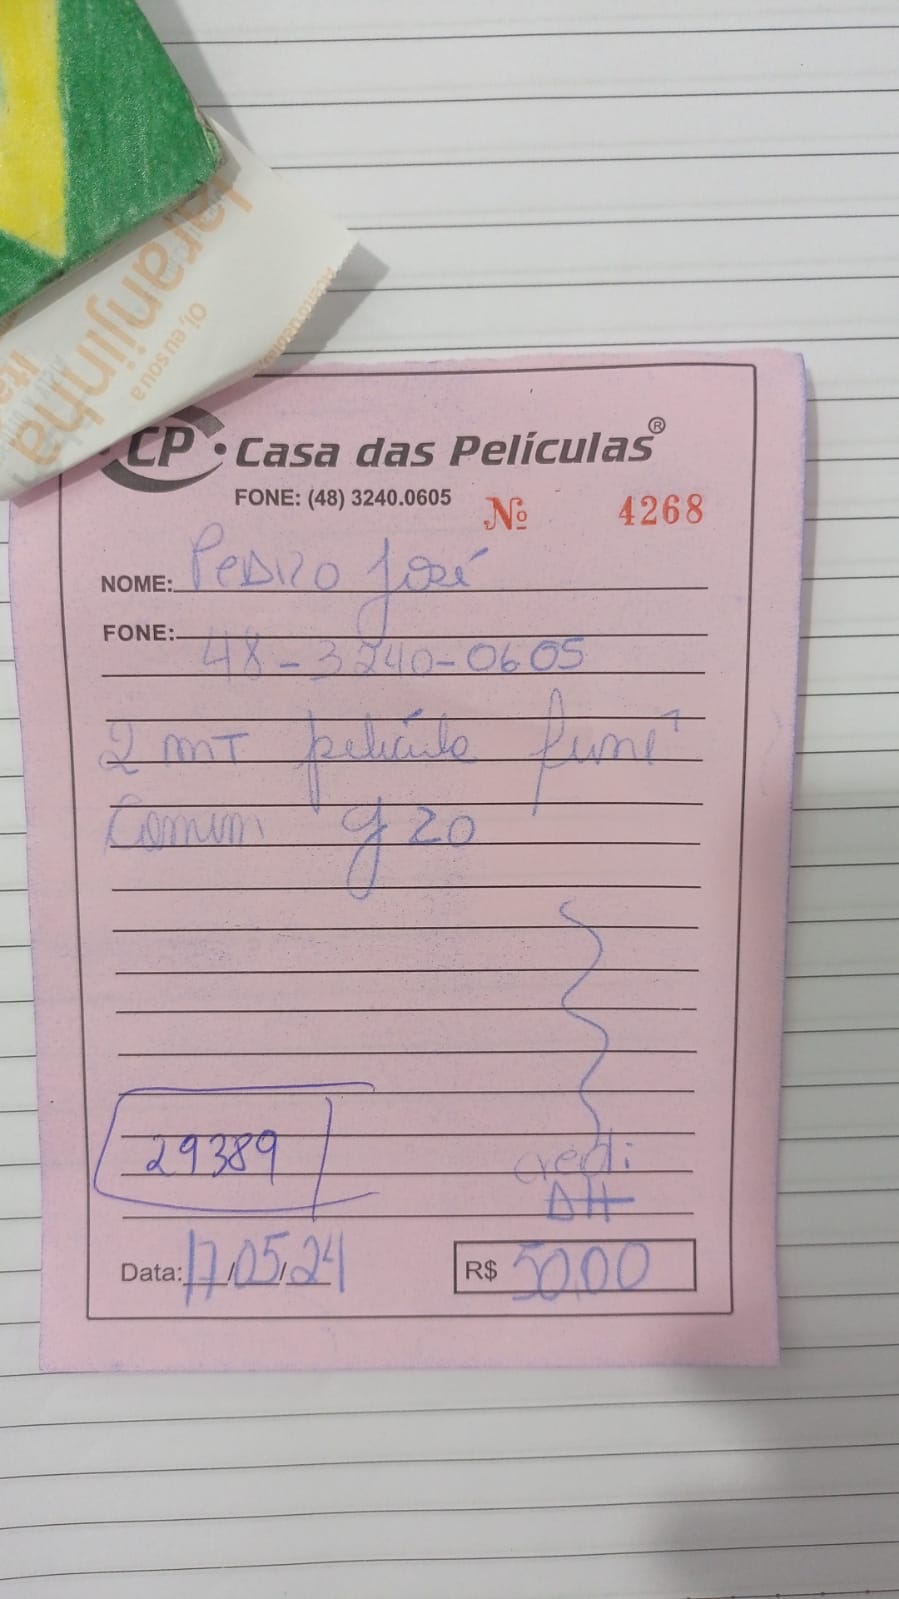 laranjinha
Oi, eu sou a
Ita
CP Casa das Películas®
FONE: (48) 3240.0605 Nº 4268
NOME: Pedro José
FONE:
48-3240-0605
2 mT película fumê
Comum g20
29389
credi
DH
Data: 17/05/24 R$ 50,00